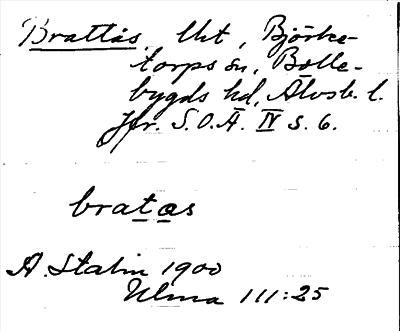 Brattås, Uht, Björke-
torps sn, Bolle-
bygds hd, Älvsb. l.
Jfr. S.O.Ä. IV s. 6.
bratas
A. Stalin 1900
Ulma 111:25